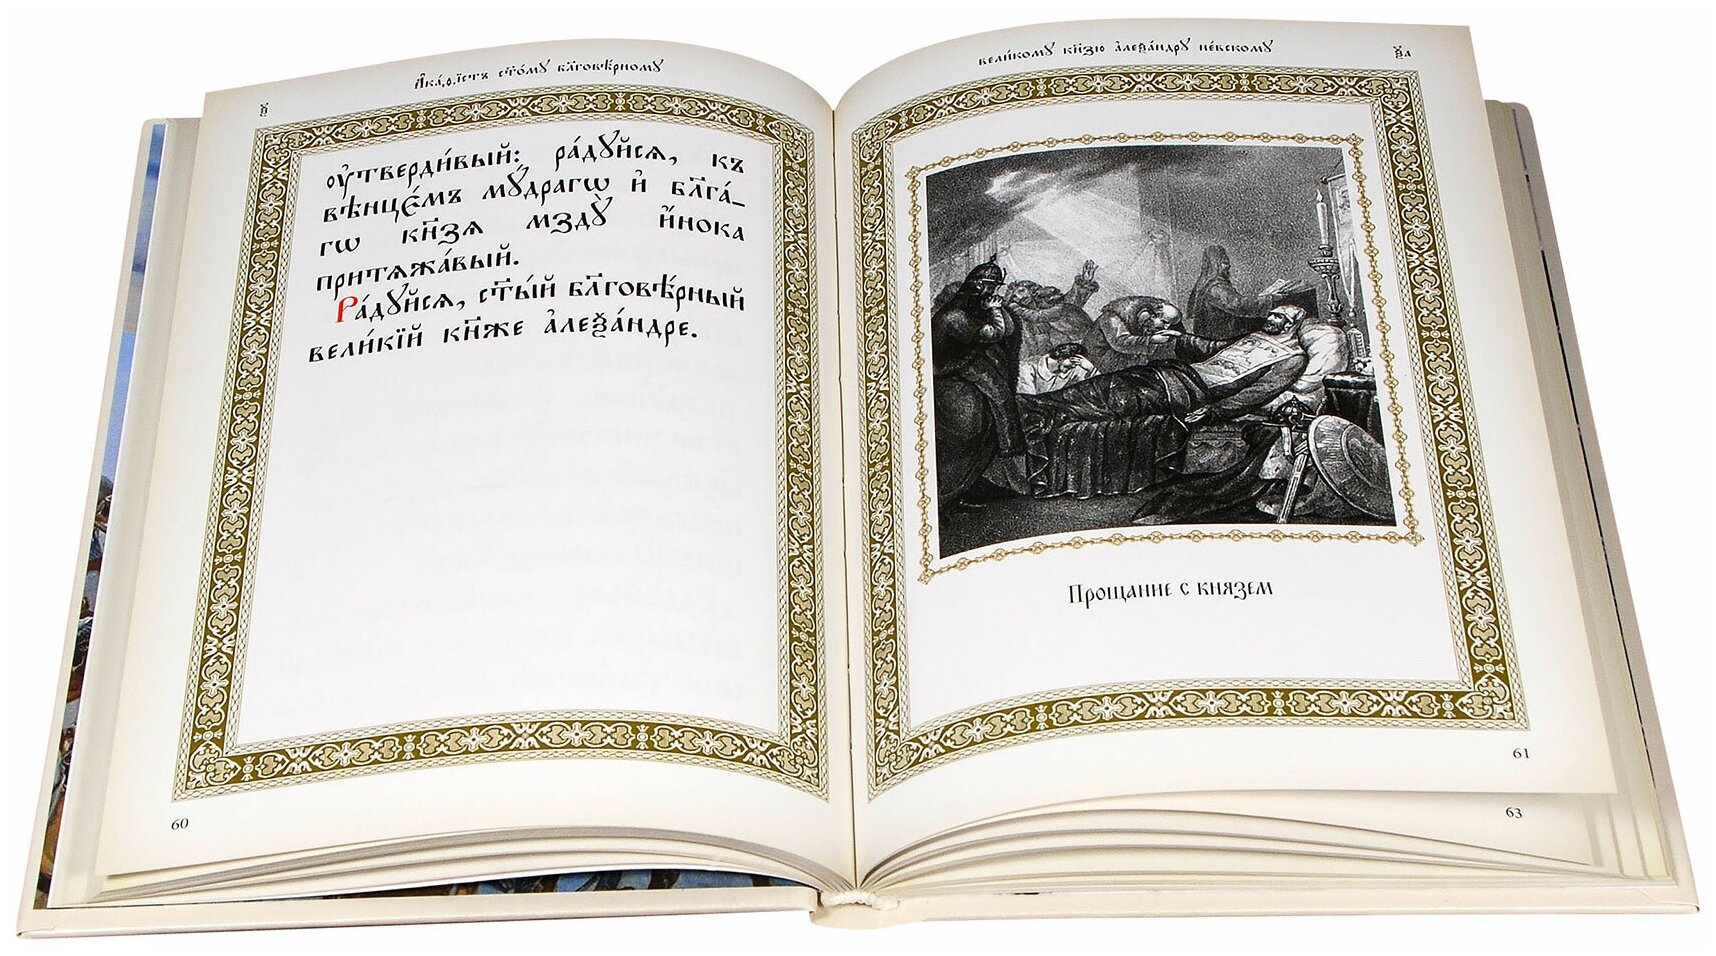 А҆ка́ѳїстъ ст҃о́му бл҃говѣ́рному
ѯ҃
оу҆твердивый: ра́дꙋйсѧ, къ
вѣнцє́мъ мꙋ́драгѡ и҆ бл҃га́-
гѡ кн҃зѧ мздꙋ̀ и҆́нока
притѧжа́вый.
Ра́дꙋйсѧ, ст҃ы́й бл҃говѣ́рный
вели́кїй кн҃же а҆леѯа́ндре.
60
вели́кому кн҃зю а҆леѯа́ндру не́вскому
ѯ҃а
Прощание с князем
61
63